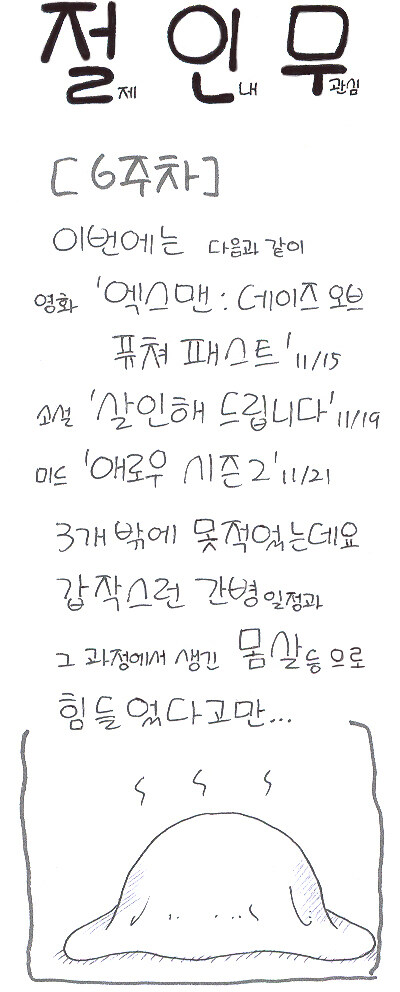 절제 인내 무관심
[6주차]
이번에는 다음과 같이
영화 '엑스맨 : 데이즈 오브
퓨쳐 패스트' 11/15
소설 '살인해 드립니다' 11/19
미드 '애로우 시즌2' 11/21
3개밖에 못적었는데요
갑작스런 간병일정과
그 과정에서 생긴 몸살등으로
힘들었다고만...